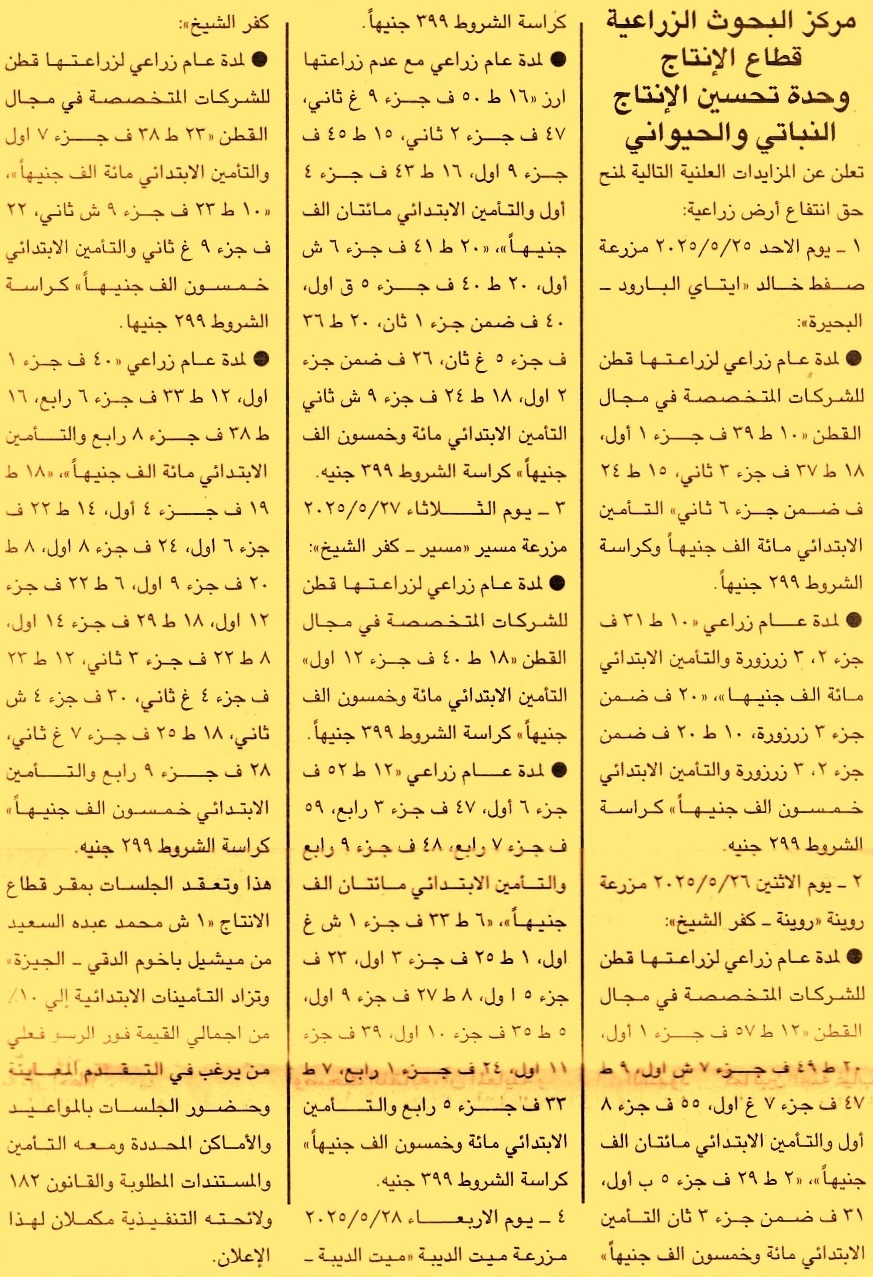 مركز البحوث الزراعية
قطاع الإنتاج
وحدة تحسين الإنتاج
النباتي والحيواني
تعلن عن المزايدات العلنية التالية لمنح
حق انتفاع أرض زراعية:
١ ـ يوم الاحد ٢٠٢٥/٥/٢٥ مزرعة
صفط خالد «ايتاي البارود ـ
البحيرة»:
● لمدة عام زراعي لزراعتها قطن
للشركات المتخصصة في مجال
القطن «١٠ ط ٣٩ ف جزء ١ أول،
١٨ ط ٣٧ ف جزء ٣ ثاني، ١٥ ط ٢٤
ف ضمن جزء ٦ ثاني» التأمين
الابتدائي مائة الف جنيهاً وكراسة
الشروط ٢٩٩ جنيهاً.
● لمدة عام زراعي «١٠ ط ٣١ ف
جزء ٢، ٣ زرزورة والتأمين الابتدائي
مائة الف جنيهاً»، «٢٠ ف ضمن
جزء ٣ زرزورة، ١٠ ط ٢٠ ف ضمن
جزء ٢، ٣ زرزورة والتأمين الابتدائي
خمسون الف جنيهاً» كراسة
الشروط ٢٩٩ جنيه.
٢ ـ يوم الاثنين ٢٠٢٥/٥/٢٦ مزرعة
روينة «روينة ـ كفر الشيخ»:
● لمدة عام زراعي لزراعتها قطن
للشركات المتخصصة في مجال
القطن «١٢ ط ٥٧ ف جزء ١ أول،
٢٠ ط ٤٩ ف جزء ٧ ش اول، ٩ ط
٤٧ ف جزء ٧ غ اول، ٥٥ ف جزء ٨
أول والتأمين الابتدائي مائتان الف
جنيهاً»، «٢ ط ٢٩ ف جزء ٥ ب أول،
٣١ ف ضمن جزء ٣ ثان التأمين
الابتدائي مائة وخمسون الف جنيهاً»
كراسة الشروط ٣٩٩ جنيهاً.
● لمدة عام زراعي مع عدم زراعتها
ارز «١٦ ط ٥٠ ف جزء ٩ غ ثاني،
٤٧ ف جزء ٢ ثاني، ١٥ ط ٤٥ ف
جزء ٩ اول، ١٦ ط ٤٣ ف جزء ٤
أول والتأمين الابتدائي مائتان الف
جنيهاً»، «٢٠ ط ٤١ ف جزء ٦ ش
أول، ٢٠ ط ٤٠ ف جزء ٥ ق اول،
٤٠ ف ضمن جزء ١ ثان، ٢٠ ط ٣٦
ف جزء ٥ غ ثان، ٢٦ ف ضمن جزء
٢ اول، ١٨ ط ٢٤ ف جزء ٩ ش ثاني
التأمين الابتدائي مائة وخمسون الف
جنيهاً» كراسة الشروط ٣٩٩ جنيه.
٣ ـ يوم الثلاثاء ٢٠٢٥/٥/٢٧
مزرعة مسير «مسير ـ كفر الشيخ»:
● لمدة عام زراعي لزراعتها قطن
للشركات المتخصصة في مجال
القطن «١٨ ط ٤٠ ف جزء ١٢ اول»
التأمين الابتدائي مائة وخمسون الف
جنيهاً» كراسة الشروط ٣٩٩ جنيهاً.
● لمدة عام زراعي «١٢ ط ٥٢ ف
جزء ٦ أول، ٤٧ ف جزء ٣ رابع، ٥٩
ف جزء ٧ رابع، ٤٨ ف جزء ٩ رابع
والتأمين الابتدائي مائتان الف
جنيهاً»، «٦ ط ٣٣ ف جزء ١ ش غ
اول، ١ ط ٢٥ ف جزء ٣ اول، ٢٣ ف
جزء ٥ ا ول، ٨ ط ٢٧ ف جزء ٩ اول،
٥ ط ٣٥ ف جزء ١٠ اول، ٣٩ ف جزء
١١ اول، ٢٤ ف جزء ١ رابع، ٧ ط
٣٣ ف جزء ٥ رابع والتأمين
الابتدائي مائة وخمسون الف جنيهاً»
كراسة الشروط ٣٩٩ جنيه.
٤ ـ يوم الاربعاء ٢٠٢٥/٥/٢٨
مزرعة ميت الديبة «ميت الديبة ـ
كفر الشيخ»:
● لمدة عام زراعي لزراعتها قطن
للشركات المتخصصة في مجال
القطن «٢٣ ط ٣٨ ف جزء ٧ اول
والتأمين الابتدائي مائة الف جنيهاً»،
«١٠ ط ٢٣ ف جزء ٩ ش ثاني، ٢٢
ف جزء ٩ غ ثاني والتأمين الابتدائي
خمسون الف جنيهاً» كراسة
الشروط ٢٩٩ جنيها.
● لمدة عام زراعي «٤٠ ف جزء ١
اول، ١٢ ط ٣٣ ف جزء ٦ رابع، ١٦
ط ٣٨ ف جزء ٨ رابع والتأمين
الابتدائي مائة الف جنيهاً»، «١٨ ط
١٩ ف جزء ٤ أول، ١٤ ط ٢٢ ف
جزء ٦ اول، ٢٤ ف جزء ٨ اول، ٨ ط
٢٠ ف جزء ٩ اول، ٦ ط ٢٢ ف جزء
١٢ اول، ١٨ ط ٢٩ ف جزء ١٤ اول،
٨ ط ٢٢ ف جزء ٣ ثاني، ١٢ ط ٢٣
ف جزء ٤ غ ثاني، ٣٠ ف جزء ٤ ش
ثاني، ١٨ ط ٢٥ ف جزء ٧ غ ثاني،
٢٨ ف جزء ٩ رابع والتأمين
الابتدائي خمسون الف جنيهاً»
كراسة الشروط ٢٩٩ جنيه.
هذا وتعقد الجلسات بمقر قطاع
الانتاج «١ ش محمد عبده السعيد
من ميشيل باخوم الدقي ـ الجيزة»
وتزاد التأمينات الابتدائية إلي ١٠٪
من اجمالي القيمة فور الرسو فعلي
من يرغب في التقدم المعاينة
وحضور الجلسات بالمواعيد
والأماكن المحددة ومعه التأمين
والمستندات المطلوبة والقانون ١٨٢
ولائحته التنفيذية مكملان لهذا
الإعلان.